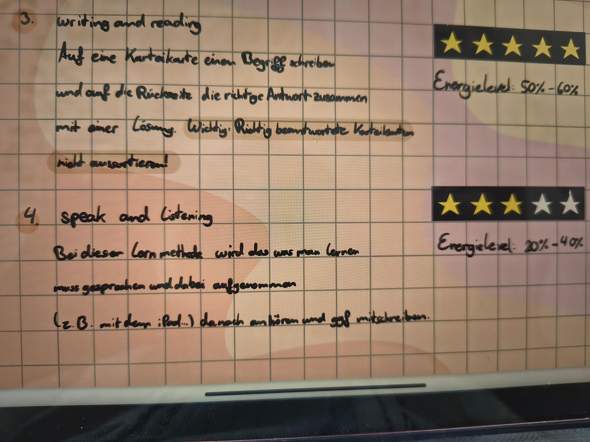 3. writing and reading
Auf eine Karteikarte einen Begriff schreiben
und auf die Rückseite die richtige Antwort zusammen
mit einer Lösung. Wichtig: Richtig beantwortete Karteikarten
nicht aussortieren!
Energielevel: 50%-60%
4. speak and listening
Bei dieser Lernmethode wird das was man lernen
muss gesprochen und dabei aufgenommen
(z.B. mit dem iPad...) danach anhören und ggf mitschreiben.
Energielevel: 20%-40%